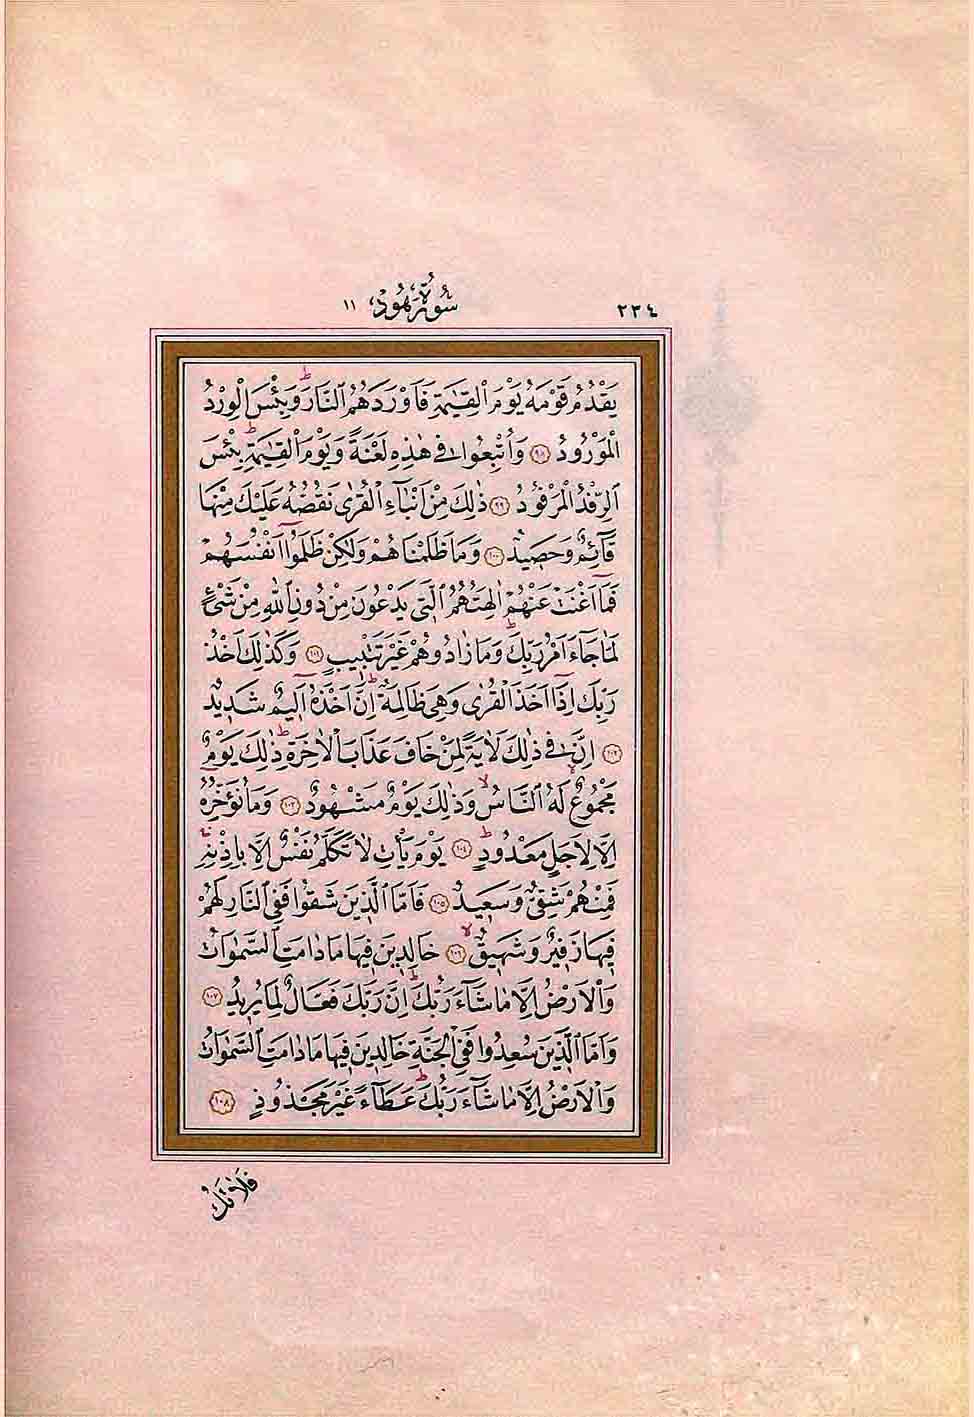 ٢٣٤
سُورَةُ هُودٍ ١١
يَقْدُمُ قَوْمَهُ يَوْمَ الْقِيٰمَةِ فَاَوْرَدَهُمُ النَّارَؕ وَبِئْسَ الْوِرْدُ
الْمَوْرُودُ ﴿٩٨﴾ وَاُتْبِعُوا فٖى هٰذِهٖ لَعْنَةً وَيَوْمَ الْقِيٰمَةِؕ بِئْسَ
الرِّفْدُ الْمَرْفُودُ ﴿٩٩﴾ ذٰلِكَ مِنْ اَنْبَٓاءِ الْقُرٰى نَقُصُّهُ عَلَيْكَ مِنْهَا
قَٓائِمٌ وَحَصٖيدٌ ﴿١٠٠﴾ وَمَا ظَلَمْنَاهُمْ وَلٰكِنْ ظَلَمُٓوا اَنْفُسَهُمْ
فَمَٓا اَغْنَتْ عَنْهُمْ اٰلِهَتُهُمُ الَّتٖى يَدْعُونَ مِنْ دُونِ اللّٰهِ مِنْ شَیْءٍ
لَمَّا جَٓاءَ اَمْرُ رَبِّكَؕ وَمَا زَادُوهُمْ غَيْرَ تَتْبٖيبٍ ﴿١٠١﴾ وَكَذٰلِكَ اَخْذُ
رَبِّكَ اِذَٓا اَخَذَ الْقُرٰى وَهِىَ ظَالِمَةٌؕ اِنَّ اَخْذَهُٓ اَلٖيمٌ شَدٖيدٌ
﴿١٠٢﴾ اِنَّ فٖى ذٰلِكَ لَاٰيَةً لِمَنْ خَافَ عَذَابَ الْاٰخِرَةِؕ ذٰلِكَ يَوْمٌ
مَجْمُوعٌ لَهُ النَّاسُۙ وَذٰلِكَ يَوْمٌ مَشْهُودٌ ﴿١٠٣﴾ وَمَا نُؤَخِّرُهُٓ
اِلَّا لِاَجَلٍ مَعْدُودٍؕ ﴿١٠٤﴾ يَوْمَ يَاْتِ لَا تَكَلَّمُ نَفْسٌ اِلَّا بِاِذْنِهٖۚ
فَمِنْهُمْ شَقِىٌّ وَسَعٖيدٌ ﴿١٠٥﴾ فَاَمَّا الَّذٖينَ شَقُوا فَفِى النَّارِ لَهُمْ
فٖيهَا زَفٖيرٌ وَشَهٖيقٌۙ ﴿١٠٦﴾ خَالِدٖينَ فٖيهَا مَا دَامَتِ السَّمٰوَاتُ
وَالْاَرْضُ اِلَّا مَا شَٓاءَ رَبُّكَؕ اِنَّ رَبَّكَ فَعَّالٌ لِمَا يُرٖيدُ ﴿١٠٧﴾
وَاَمَّا الَّذٖينَ سُعِدُوا فَفِى الْجَنَّةِ خَالِدٖينَ فٖيهَا مَا دَامَتِ السَّمٰوَاتُ
وَالْاَرْضُ اِلَّا مَا شَٓاءَ رَبُّكَؕ عَطَٓاءً غَيْرَ مَجْذُوذٍ ﴿١٠٨﴾
فَلَا تَكُ